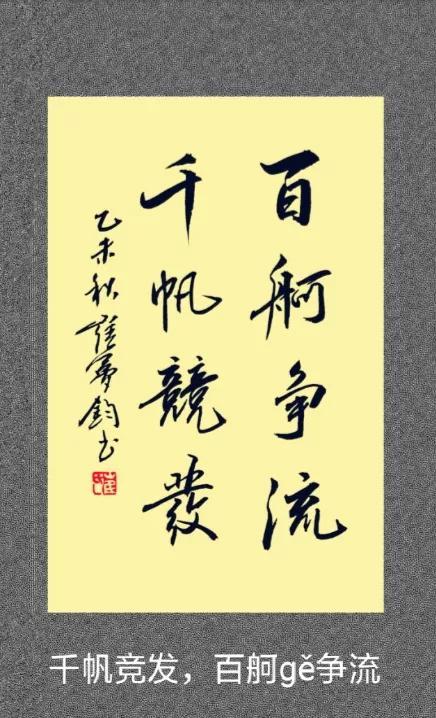 百舸争流
千帆競發
乙未秋
書
千帆竞发，百舸gě争流